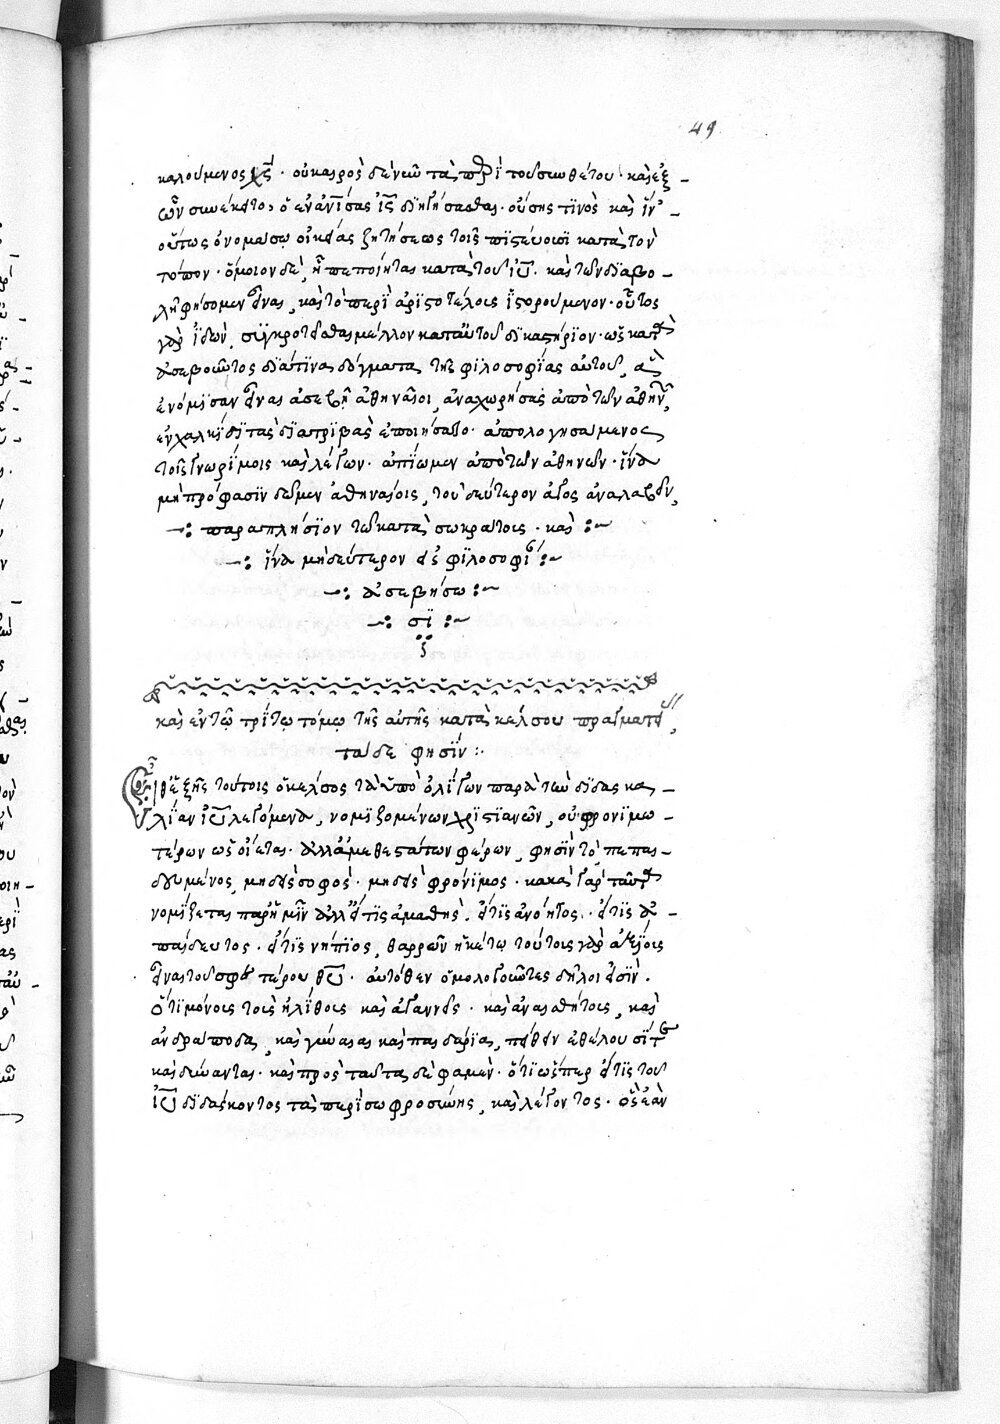 49
καλούμενος χς· οὐ καιρὸς δὲ νῦν τὰ περὶ τοῦ συνθέτου καὶ ἐξ
ὧν συνέκειτο, ὁ ἐνανθρωπήσας ις διηγήσασθαι· οὔσης τινὸς καὶ ἵν'
οὕτως ὀνομάσω οἰκείας ζητήσεως τοῖς πιστεύουσι κατὰ τὸν
τόπον· ὅμοιον δὲ, πεποίηται κατὰ τοῦ ιυ. καὶ τῶν διαβο
ληφήσομεν εἶναι, καὶ τὸ περὶ ἀριστοτέλους ἱστορούμενον· οὗτος
γὰρ ἰδὼν συγκροτεῖσθαι μέλλον κατ' αὐτοῦ δικαστήριον· ὡς κατὰ
ἀσεβοῦντος διά τινα δόγματα τῆς φιλοσοφίας αὐτοῦ, ἃ
ἐνόμισαν εἶναι ἀσεβῆ ἀθηναῖοι, ἀναχωρήσας ἀπὸ τῶν ἀθηνῶν,
ἐν χαλκίδι τὰς διατριβὰς ἐποιήσατο· ἀπολογησάμενος
τοῖς γνωρίμοις καὶ λέγων· ἀπίωμεν ἀπὸ τῶν ἀθηνῶν· ἵνα
μὴ πρόφασιν δῶμεν ἀθηναίοις, τοῦ δεύτερον ἄγος ἀναλαβεῖν,
παραπλήσιον τῷ κατὰ σωκράτους· καὶ
ἵνα μὴ δεύτερον εἰς φιλοσοφί
ἀσεβήσω
σι
καὶ ἐν τῷ τρίτῳ τόμῳ τῆς αὐτῆς κατὰ κέλσου πραγματεί,
τάδε φησίν:
εἶθ' ἑξῆς τούτοις ὁ κέλσος τὰ ὑπὸ ὀλίγων παρὰ τὴν διδασκα
λίαν ιυ λεγόμενα, νομιζομένων χριστιανῶν, οὐ φρονιμω
τέρων ὡς οἴεται· ἀλλ' ἀμαθεστάτων φέρων, φησὶν τὸ πεπαι
δευμένος, μηδεὶς σοφὸς· μηδεὶς φρόνιμος· κακὰ γὰρ ταῦτα
νομίζεται παρ' ἡμῖν ἀλλ' εἴ τις ἀμαθὴς· εἴ τις ἀνόητος· εἴ τις ἀ
παίδευτος· εἴ τις νήπιος, θαρρῶν ἡκέτω τούτοις γὰρ ἀξίους
εἶναι τοῦ σφετέρου θυ· αὐτόθεν ὁμολογοῦντες δῆλοί εἰσιν.
ὅτι μόνους τοὺς ἠλιθίους καὶ ἀγεννεῖς· καὶ ἀναισθήτους, καὶ
ἀνδράποδα, καὶ γύναια καὶ παιδάρια, πείθειν ἐθέλουσί τε
καὶ δύνανται· καὶ πρὸς ταῦτα δέ φαμεν· ὅτι ὥσπερ εἴ τις τοῦ
ιυ διδάσκοντος τὰ περὶ σωφροσύνης, καὶ λέγοντος· ὃς ἐὰν